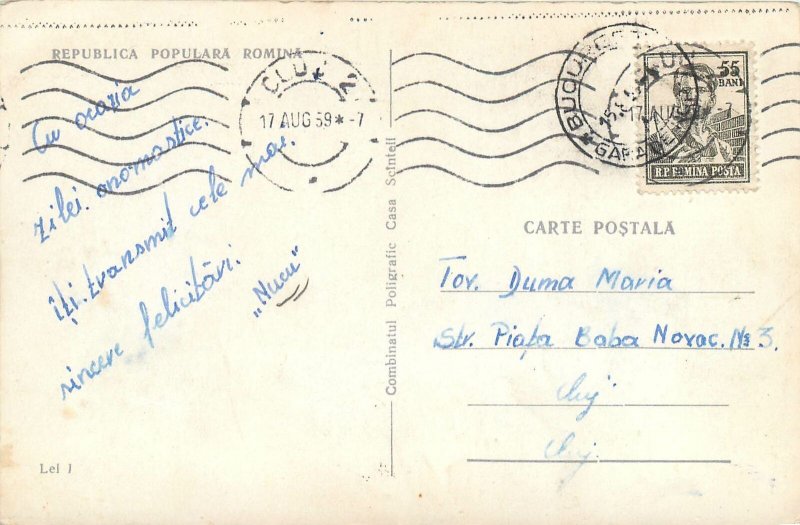 REPUBLICA POPULARĂ ROMÎNĂ
CLUJ 2
17 AUG 59 * -7
Cu ocazia
zilei onomastice.
îți transmit cele mai
sincere felicitări.
„Nucu”
Lei 1
Combinatul Poligrafic Casa Scînteii
BUCUREȘTI
GARA
17 AUG
55
BANI
R.P. ROMINA POSTA
CARTE POȘTALĂ
Tov. Duma Maria
Str. Piața Baba Novac. № 3.
Cluj
Cluj.